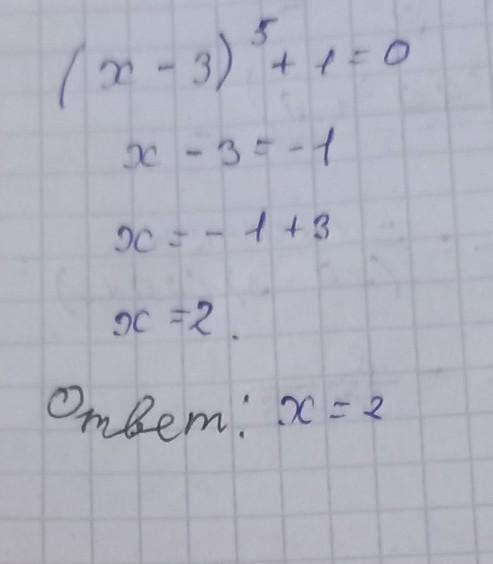 (x - 3)⁵ + 1 = 0
x - 3 = - 1
x = - 1 + 3
x = 2.
Ответ: x = 2